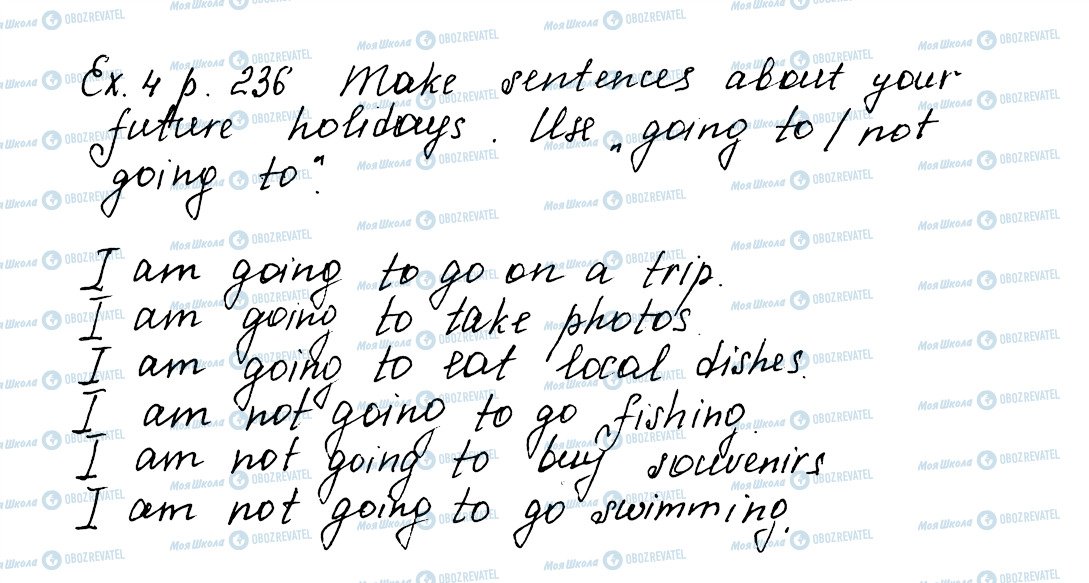 Ex. 4 p. 236 Make sentences about your
future holidays. Use „going to / not
going to".
I am going to go on a trip.
I am going to take photos.
I am going to eat local dishes.
I am not going to go fishing.
I am not going to buy souvenirs
I am not going to go swimming.